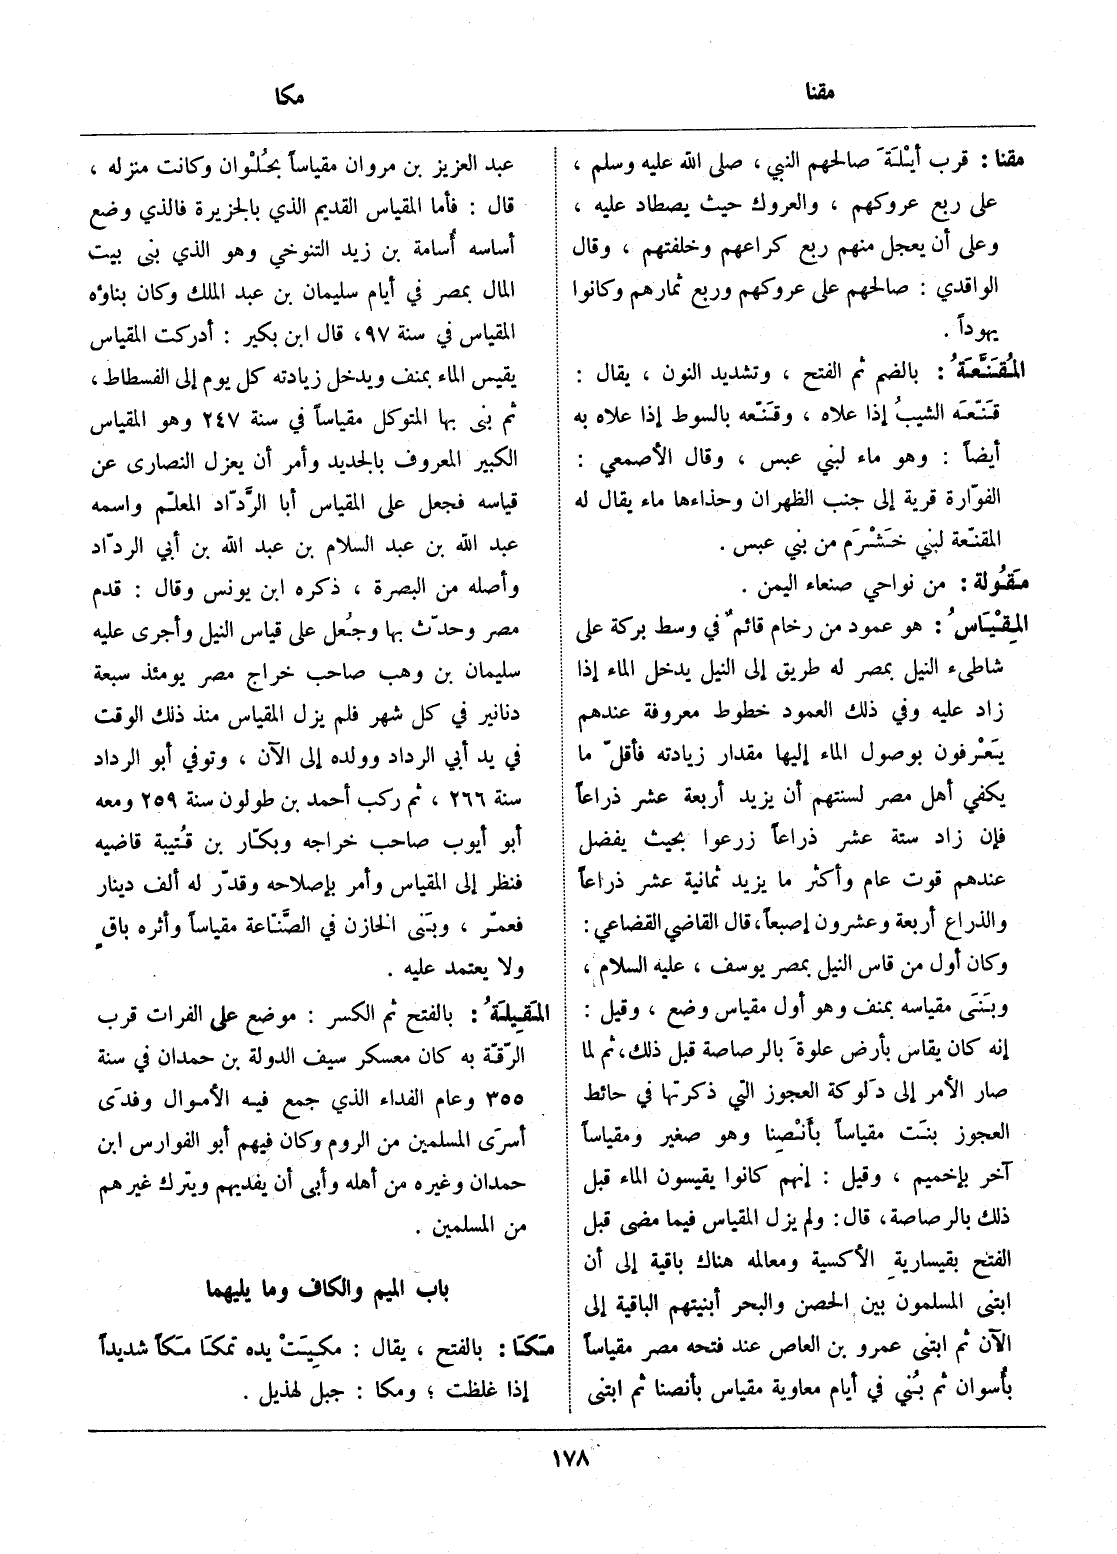 مقنا
مكا
مقنا : قرب أَيْلَةَ صالحهم النبي ، صلى الله عليه وسلم ،
على ربع عروكهم ، والعروك حيث يصطاد عليه ،
وعلى أن يعجل منهم ربع كراعهم وخلفتهم ، وقال
الواقدي : صالحهم على عروكهم وربع ثمارهم وكانوا
يهوداً .
المُقَنَّعَةُ : بالضم ثم الفتح ، وتشديد النون ، يقال :
قَنّعَه الشيبُ إذا علاه ، وقَنّعه بالسوط إذا علاه به
أيضاً : وهو ماء لبني عبس ، وقال الأصمعي :
الفوّارة قرية إلى جنب الظهران وحذاءها ماء يقال له
المقنّعة لبني خَشْرَم من بني عبس .
مَقُولة : من نواحي صنعاء اليمن .
المِقْيَاسُ : هو عمود من رخام قائمٌ في وسط بركة على
شاطىء النيل بمصر له طريق إلى النيل يدخل الماء إذا
زاد عليه وفي ذلك العمود خطوط معروفة عندهم
يَعْرفون بوصول الماء إليها مقدار زيادته فأقلّ ما
يكفي أهل مصر لسنتهم أن يزيد أربعة عشر ذراعاً
فإن زاد ستة عشر ذراعاً زرعوا بحيث يفضل
عندهم قوت عام وأكثر ما يزيد ثمانية عشر ذراعاً
والذراع أربعة وعشرون إصبعاً، قال القاضي القضاعي :
وكان أول من قاس النيل بمصر يوسف ، عليه السلام ،
وبَنَى مقياسه بمنف وهو أول مقياس وضع ، وقيل :
إنه كان يقاس بأرض علوةَ بالرصاصة قبل ذلك، ثم لما
صار الأمر إلى دَلوكة العجوز التي ذكرتها في حائط
العجوز بنَت مقياساً بأَنْصِنا وهو صغير ومقياساً
آخر بإخميم ، وقيل : إنهم كانوا يقيسون الماء قبل
ذلك بالرصاصة، قال : ولم يزل المقياس فيما مضى قبل
الفتح بقيساريةِ الأكسية ومعالمه هناك باقية إلى أن
ابتنى المسلمون بين الحصن والبحر أبنيتهم الباقية إلى
الآن ثم ابتنى عمرو بن العاص عند فتحه مصر مقياساً
بأُسوان ثم بُني في أيام معاوية مقياس بأنصنا ثم ابتنى
عبد العزيز بن مروان مقياساً بحُلْوان وكانت منزله ،
قال : فأما المقياس القديم الذي بالجزيرة فالذي وضع
أساسه أُسامة بن زيد التنوخي وهو الذي بنى بيت
المال بمصر في أيام سليمان بن عبد الملك وكان بناؤه
المقياس في سنة ٩٧، قال ابن بكير : أدركت المقياس
يقيس الماء بمنف ويدخل زيادته كل يوم إلى الفسطاط ،
ثم بنى بها المتوكل مقياساً في سنة ٢٤٧ وهو المقياس
الكبير المعروف بالجديد وأمر أن يعزل النصارى عن
قياسه فجعل على المقياس أبا الرَّدّاد المعلّم واسمه
عبد الله بن عبد السلام بن عبد الله بن أبي الردّاد
وأصله من البصرة ، ذكره ابن يونس وقال : قدم
مصر وحدّث بها وجُعل على قياس النيل وأجرى عليه
سليمان بن وهب صاحب خراج مصر يومئذ سبعة
دنانير في كل شهر فلم يزل المقياس منذ ذلك الوقت
في يد أبي الرداد وولده إلى الآن ، وتوفي أبو الرداد
سنة ٢٦٦ ، ثم ركب أحمد بن طولون سنة ٢٥٩ ومعه
أبو أيوب صاحب خراجه وبكّار بن قُتيبة قاضيه
فنظر إلى المقياس وأمر بإصلاحه وقدّر له ألف دينار
فعمّر ، وبَنى الخازن في الصَّنّاعة مقياساً وأثره باقٍ
ولا يعتمد عليه .
المَقِيلَةُ : بالفتح ثم الكسر : موضع على الفرات قرب
الرّقّة به كان معسكر سيف الدولة بن حمدان في سنة
٣٥٥ وعام الفداء الذي جمع فيه الأموال وفدَى
أسرَى المسلمين من الروم وكان فيهم أبو الفوارس ابن
حمدان وغيره من أهله وأبى أن يفديهم ويترك غيرهم
من المسلمين .
باب الميم والكاف وما يليهما
مَكَا : بالفتح ، يقال : مكِيَتْ يده تمكَا مَكاً شديداً
إذا غلظت ؛ ومكا : جبل لهذيل .
١٧٨